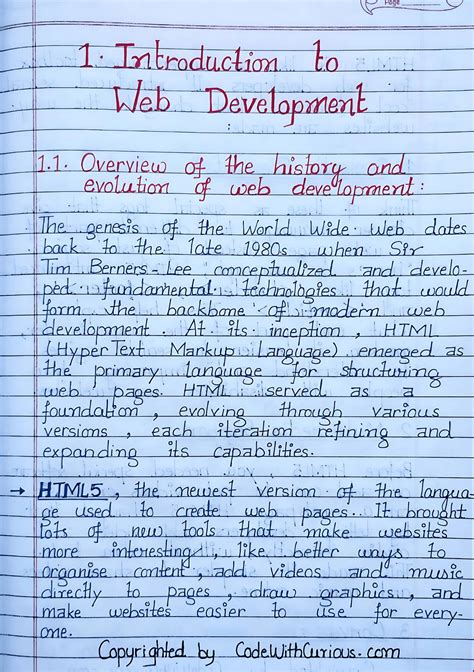 Page
1. Introduction to
Web Development
1.1. Overview of the history and
evolution of web development :
The genesis of the World Wide Web dates
back to the late 1980s when Sir
Tim Berners-Lee conceptualized and develo-
ped fundamental technologies that would
form the backbone of modern web
development. At its inception, HTML
(HyperText Markup Language) emerged as
the primary language for structuring
web pages. HTML served as a
foundation, evolving through various
versions, each iteration refining and
expanding its capabilities.
→ HTML5, the newest version of the langua-
ge used to create web pages. It brought
lots of new tools that make websites
more interesting, like better ways to
organise content, add videos and music
directly to pages, draw graphics, and
make websites easier to use for every-
one.
Copyrighted by CodeWithCurious.com